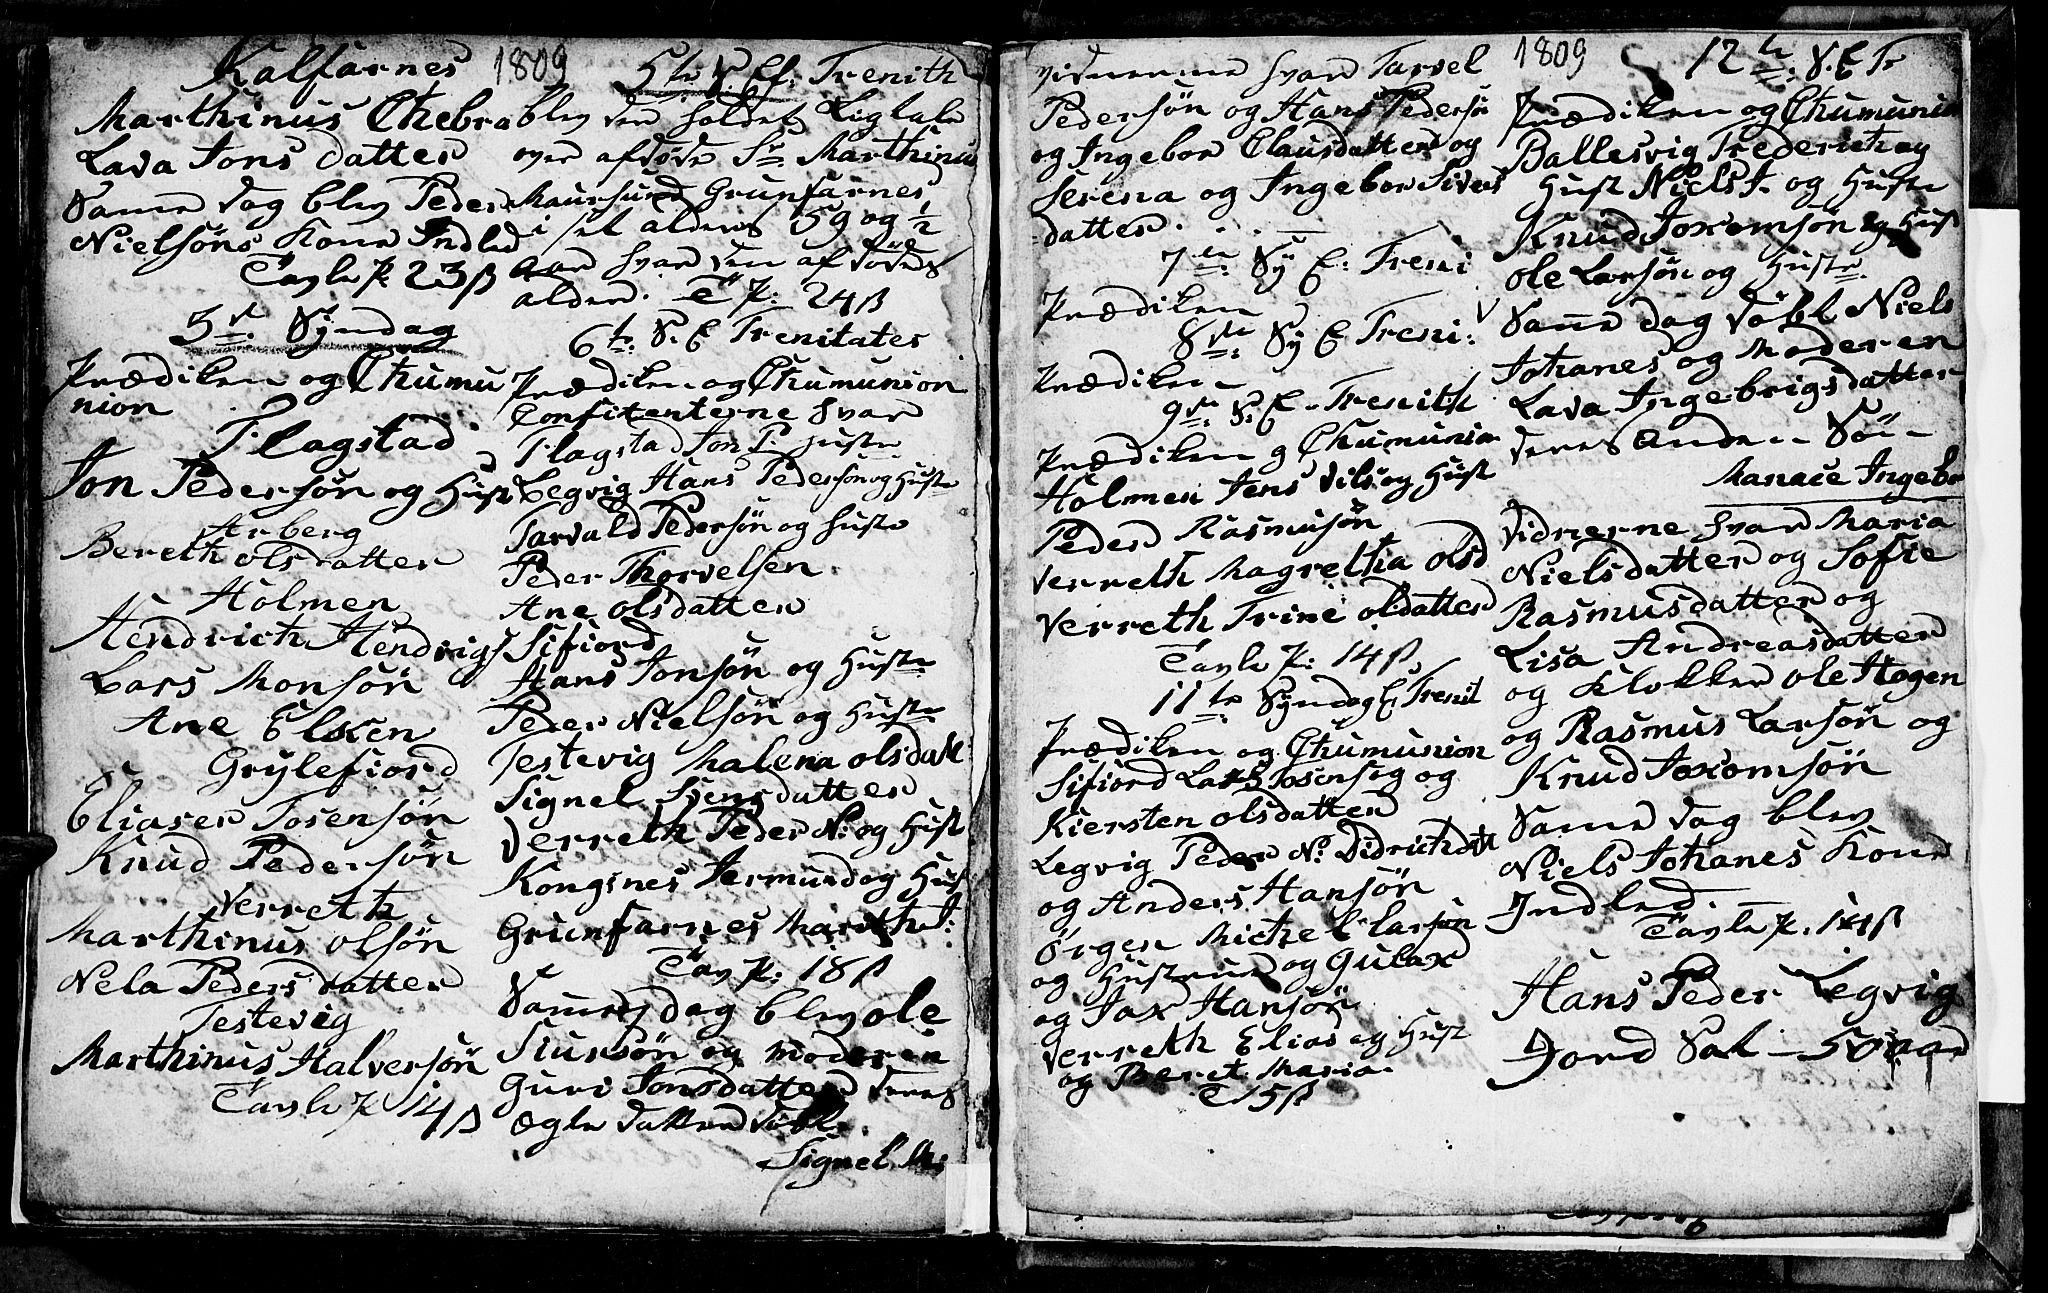 Kalfarnes 1809
Marthinus Chebra
Lava Jons datter
Same dag blev Peder
Nielsöns Kone Indled
Tavle P. 23 β
5te Syndag
Prædiken og Chumu
nion
Flagstad
Jon Pedersön og Hust
Arberg
Bereth olsdatter
Holmen
Hendrich Hendrigs
Lars Monsön
Ane Elsken
Grylefiord
Eliaser Tosensön
Knud Pedersön
Verreth
Marthinus olsön
Nela Peders datter
Testevig
Marthinus Halversön
Tavle P. 14 β
5te S. Ef. Trenith
blev den holdet Liglale
over afdöde Sr Marthinus
Maursund Grunfarnes
i sit alders 59 og 1/2
Aar svar den af dödes
alder. T P: 24 β
6te S. E Trenitates
Prædiken og Chumunion
Confitenterne svar
Flagstad Jon P. Huste
Legvig Hans Pedersön og Huste
Tarvald Pedersön og Huste
Peder Thorvelsen
Ane olsdatter
Sifiord
Hans Jonsön og Huste
Peder Nielsön og Huste
Testevig Malena olsdatt
Signel Svensdatter
Verreth Peder N: og Hust
Kongsnes Jermund og Hust
Grunfarnes Mareth J:
Tav P: 18 β
Samme dag blev ole
Siursön og moderen
Guri Jonsdatter deres
Ægte datter döbt
Signel M:
1809
vidnerne svar Tarvel
Pedersön og Hans Pedersö
og Ingebor Clausdatter og
Serena og Ingebor Sivers
datter.
7de Sy E: Treni
Prædiken
8de Sy E Treni:
Prædiken
9de S. E. Trenith
Prædiken og Chumunion
Holmen Jens Nils og Hust
Peder Rasmusön
Verreth Magretha olsd
Verreth Trine olsdatter
Tavle P: 14 β
11te Syndag E. Trenit
Prædiken og Chumunion
Sifiord Lars Tosensög og
Kiersten olsdatter
Legvig Peder N: Didrichdatt
og Anders Hansön
Örgen Michel Larsön
og Hustrue og Gulax
og Jax Hansön
Verreth Elias og Hust
og Beret Maria
T 15 β
12te S. E Tr
Prædiken og Chumunion
Ballesvig Frederich og
Hust Niels J. og Huste
Knud Joxomsön og Hust
ole Larsön og Huste
Same dag döbt Niels
Johanes og Moderen
Lava Ingebrigsdatter
deres Anden Sön
Manase Ingebr
Vidnerne svar Maria
Nielsdatter og Sofie
Rasmusdatter og
Lisa Andreasdatter
og Klokker ole Hagen
og Rasmus Larsön og
Knud Joxomsön
Same dag blev
Niels Johanes Kone
Indled.
Tavle P. 14 β
Hans Peder Legvig
Jord Sal